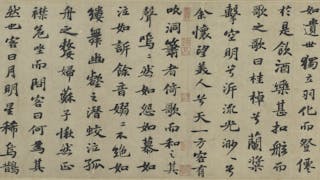 如遺世獨立羽化而登僊
於是飲酒樂甚扣舷而
歌之歌曰桂棹兮蘭槳
擊空明兮泝流光渺渺兮
余懷望美人兮天一方客有
吹洞簫者倚歌而和之其
聲嗚嗚然如怨如慕如
泣如訴餘音嫋嫋不絕如
縷舞幽壑之潛蛟泣孤
舟之嫠婦蘇子愀然正
襟危坐而問客曰何為其
然也客曰月明星稀烏鵲